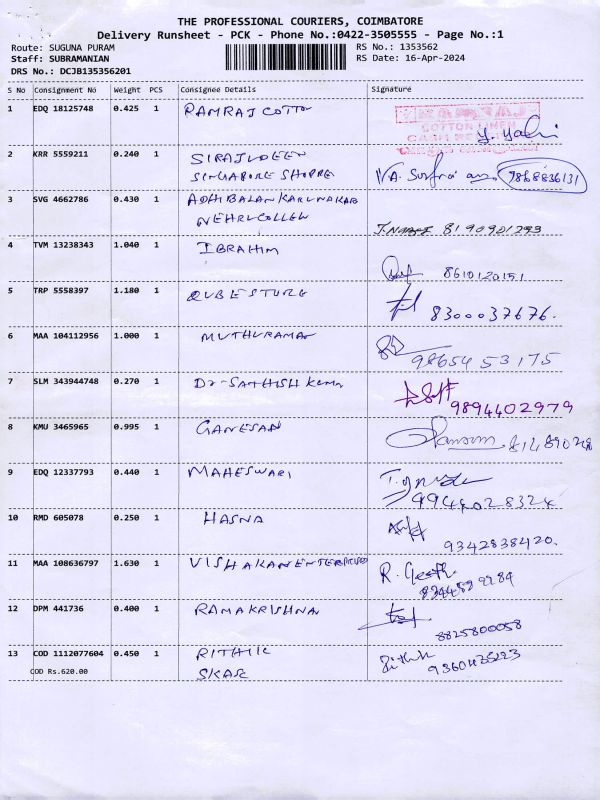 THE PROFESSIONAL COURIERS, COIMBATORE
Delivery Runsheet - PCK - Phone No.:0422-3505555 - Page No.:1
Route: SUGUNA PURAM RS No.: 1353562
Staff: SUBRAMANIAN RS Date: 16-Apr-2024
DRS No.: DCJB135356201
S No Consignment No Weight PCS Consignee Details Signature
1 EDQ 18125748 0.425 1 RAMRAJ COTTON
COTTON LINEN
2 KRR 5559211 0.240 1 SIRAJUDEEN
SINGAPORE SHOPPE 9868836131
3 SVG 4662786 0.430 1 ADHIBALAN KARUNAKAR
NEHRU COLLEGE
8190901293
4 TVM 13238343 1.040 1 IBRAHIM
8610120151
5 TRP 5558397 1.180 1 QUBE STORE
8300037676.
6 MAA 104112956 1.000 1 MUTHURAMAN
98654 53175
7 SLM 343944748 0.270 1 Dr-SATHISH KUMAR
9894402979
8 KMU 3465965 0.995 1 GANESAN
9 EDQ 12337793 0.440 1 MAHESWARI
9944028324
10 RMD 605078 0.250 1 HASNA
9342838420.
11 MAA 108636797 1.630 1 VISHAKAN ENTERPRISES
R. Geetha
12 DPM 441736 0.400 1 RAMAKRISHNA
8825800058
13 COD 1112077604 0.450 1 RITHIK
COD Rs.620.00 SKAR
Rithik 9360435223